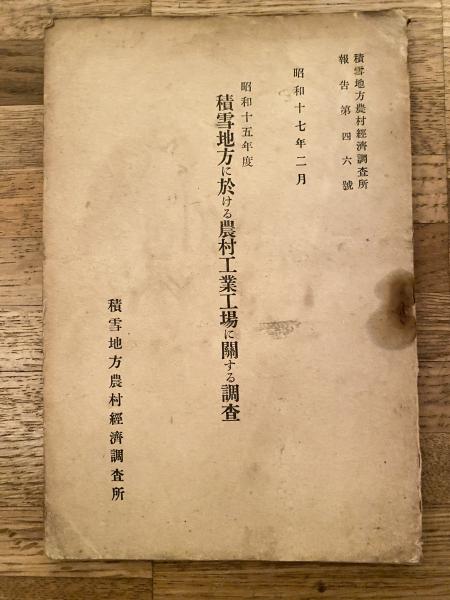 積雪地方農村經濟調査所
報告第四六號
昭和十七年二月
昭和十五年度
積雪地方に於ける農村工業工場に關する調査
積雪地方農村經濟調査所